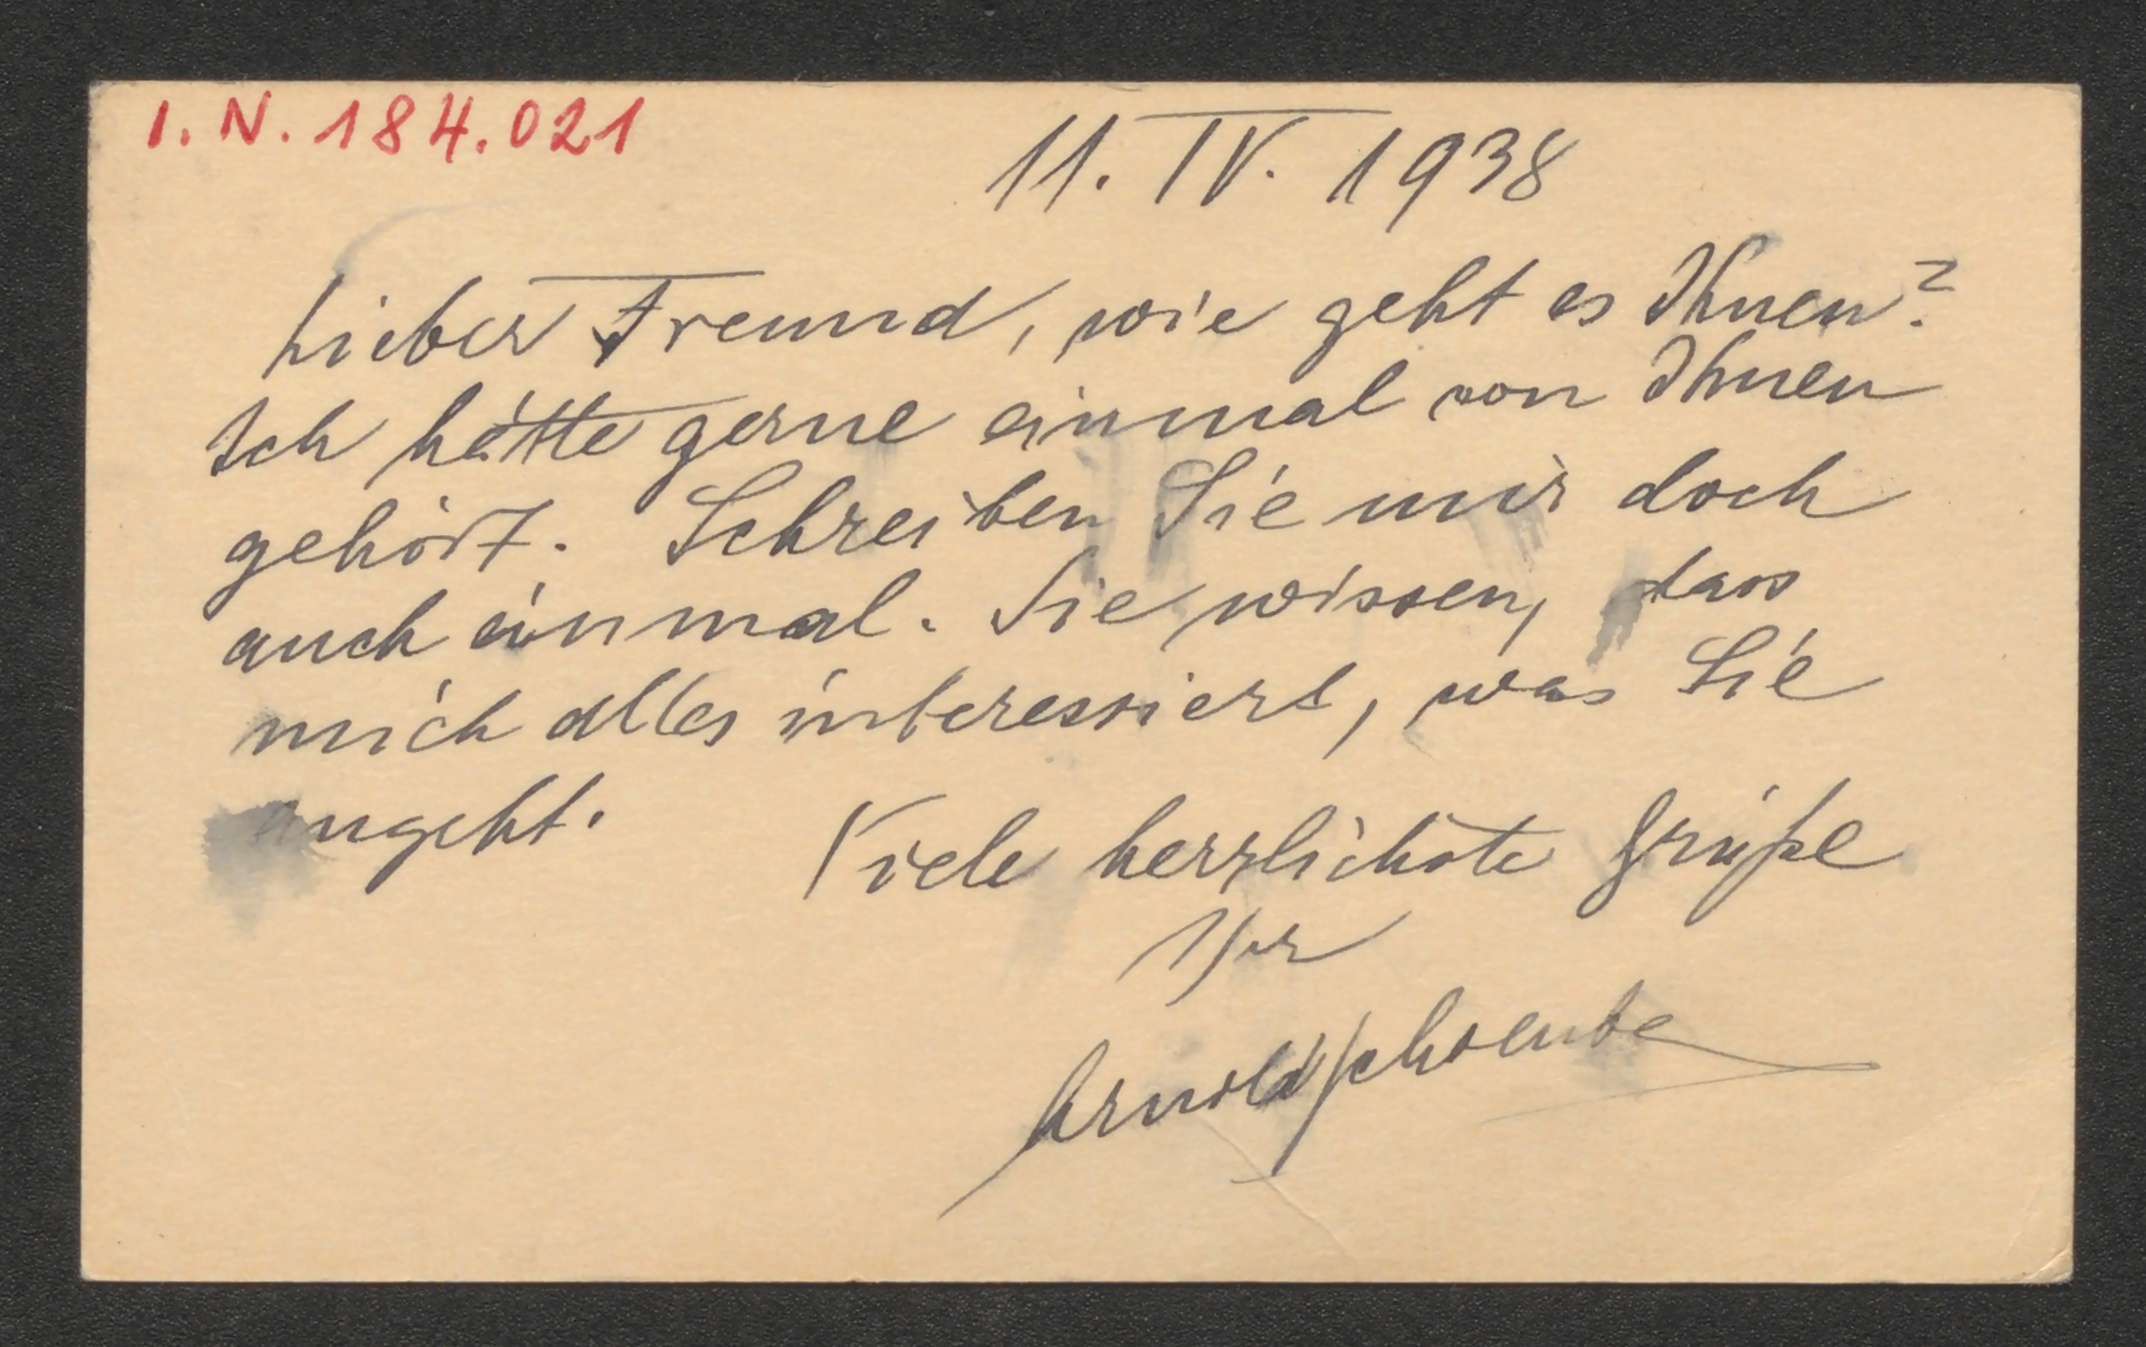 I. N. 184.021
11. IV. 1938
Lieber Freund, wie geht es Ihnen?
Ich hätte gerne einmal von Ihnen
gehört. Schreiben Sie mir doch
auch einmal. Sie wissen, dass
mich alles interessiert, was Sie
angeht.
Viele herzlichste Grüße
Ihr
Arnold Schoenberg